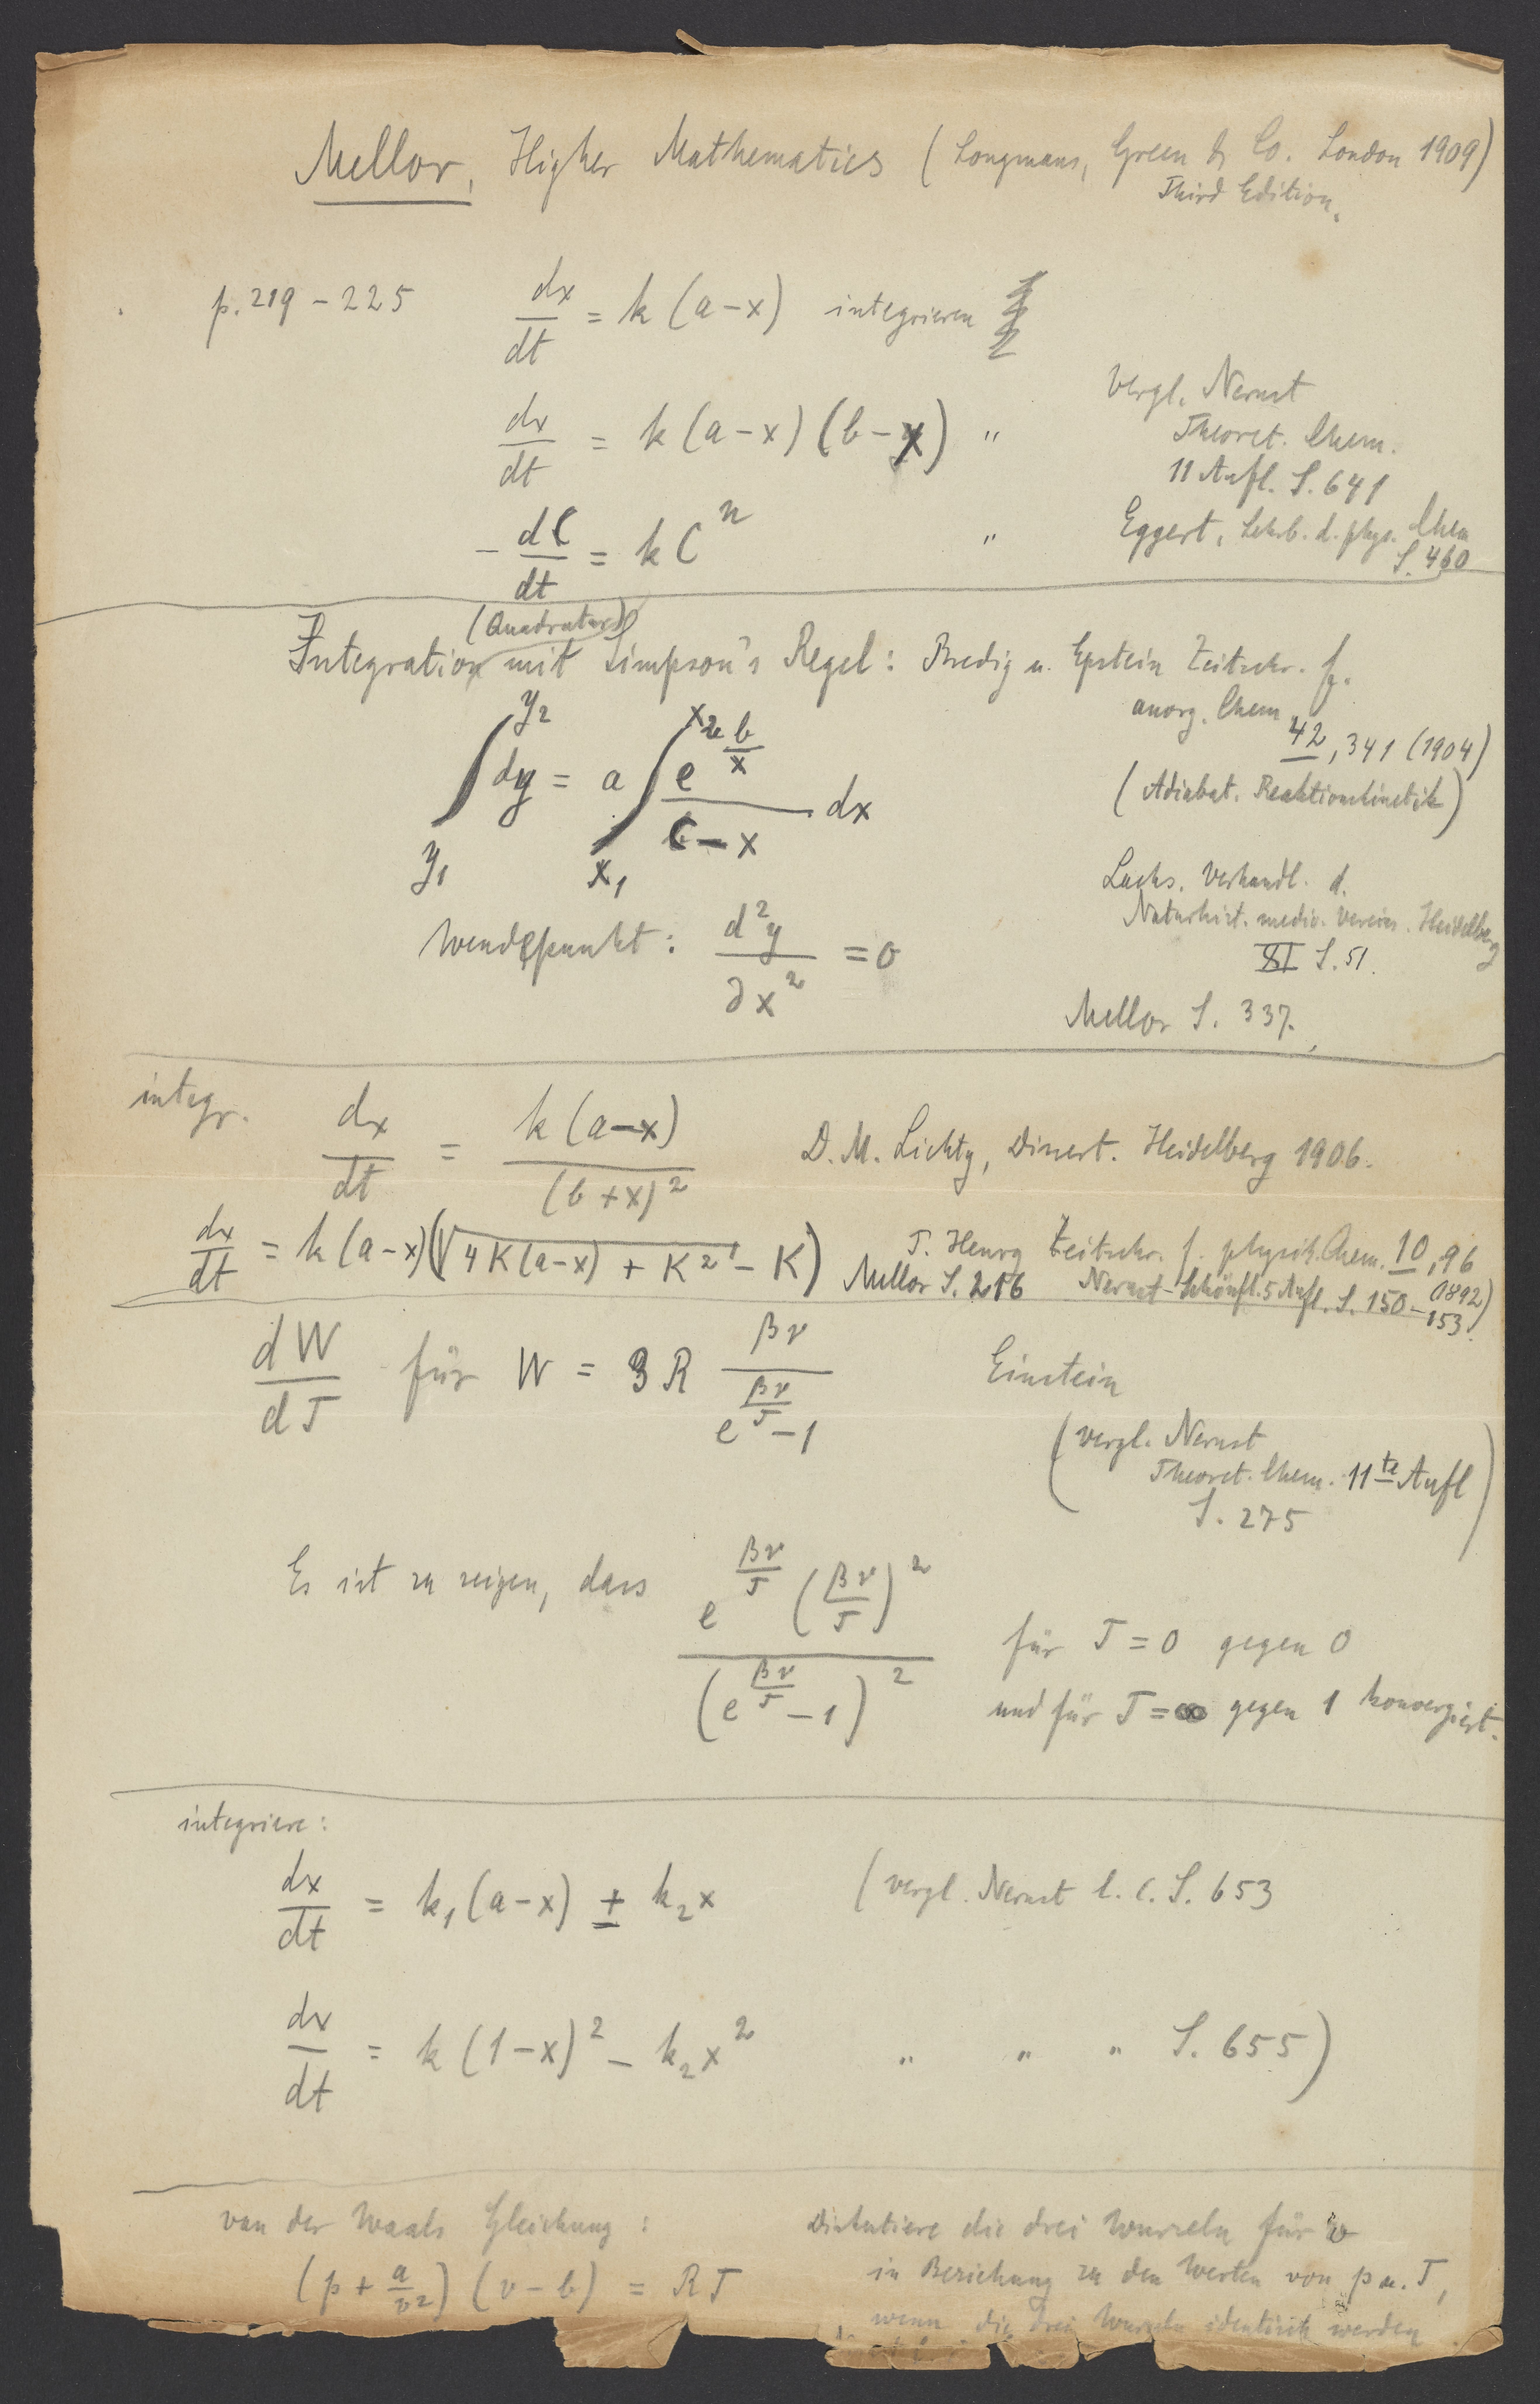 Mellor, Higher Mathematics (Longmans, Green & Co. London 1909)
Third Edition.
p. 219 – 225 dx/dt = k (a – x) integrieren
dx/dt = k (a – x) (b – x) "
Vergl. Nernst
Theoret. Chem.
11 Aufl. S. 641
– dC/dt = k C^n "
Eggert, Lehrb. d. phys. Chem
S. 460
(Quadratur)
Integration mit Simpson's Regel: Bredig u. Epstein Zeitschr. f.
anorg. Chem.
42, 341 (1904)
(Adiabat. Reaktionskinetik)
∫_{y1}^{y2} dy = a ∫_{x1}^{x2} e^{b/x}/(C – x) dx
Lucks. Verhandl. d.
Naturhist. mediz. Vereins. Heidelberg
XI S. 51.
Wendepunkt: d²y/∂x² = 0
Mellor S. 337.
integr. dx/dt = k (a – x)/(b + x)² D. M. Lichty, Dissert. Heidelberg 1906.
dx/dt = k (a – x) (√4 K (a – x) + K² – K) P. Henry Zeitschr. f. physik. Chem. 10, 96
(1892)
Mellor S. 216 Nernst-Schönfl. 5 Aufl. S. 150 – 153.
dW/dT für W = 3 R βν/(e^{βν/T} – 1) Einstein
(vergl. Nernst
Theoret. Chem. 11te Aufl
S. 275)
Es ist zu zeigen, dass e^{βν/T} (βν/T)²/(e^{βν/T} – 1)² für T = 0 gegen 0
und für T = ∞ gegen 1 konvergiert.
integriere:
dx/dt = k₁ (a – x) ± k₂ x (vergl. Nernst l. c. S. 653
dx/dt = k (1 – x)² – k₂ x² " " " S. 655)
van der Waals Gleichung : Diskutiere die drei Wurzeln für v
(p + a/v²) (v – b) = R T in Beziehung zu den Werten von p u. T,
wenn die drei Wurzeln identisch werden